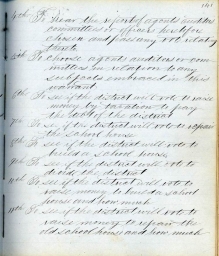 4th To hear the report of agents auditors
committees or officers heretofore
chosen and pass any vote relating
thereto
5th To choose agents auditors or com
mittees in relation to any
subjects embraced in this
warrant
6th To see if the district will vote to raise
money by taxation to pay
the debts of the district
7th To see if the district will vote to repair
the school house
8th To see if the district will vote to
build a school house
9th To see if the district will vote to
divide the district
10th To see if the district will vote to
raise money to build a school
house and how much
11th To see if the district will vote to
raise money to repair the
old school house and how much